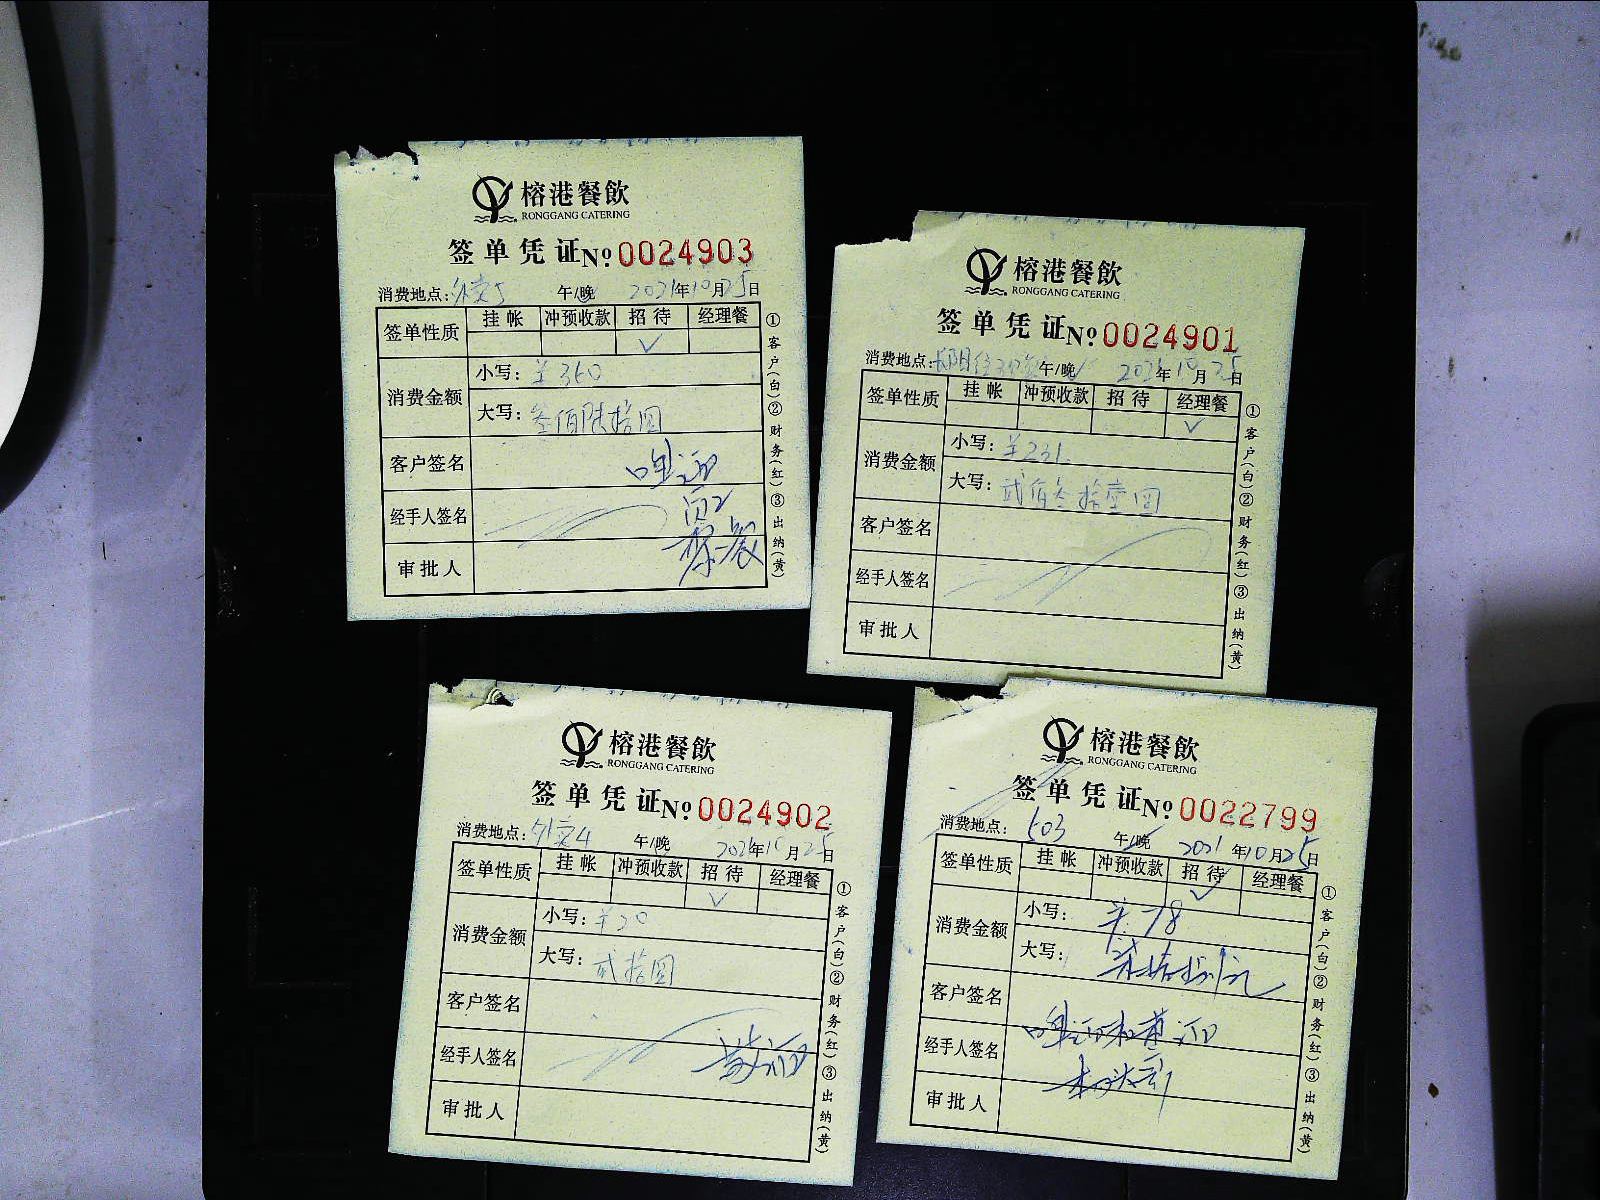 榕港餐飲
RONGGANG CATERING
签单凭证№0024903
消费地点: 午/晚 2021年10月25日
签单性质 挂帐 冲预收款 招待 经理餐
✓
消费金额
小写: ¥360
大写: 叁佰陆拾圆
客户签名
经手人签名
审批人
①客户(白)②财务(红)③出纳(黄)
榕港餐飲
RONGGANG CATERING
签单凭证№0024901
消费地点: 午/晚 2021年10月25日
签单性质 挂帐 冲预收款 招待 经理餐
✓
消费金额
小写: ¥231
大写: 贰佰叁拾壹圆
客户签名
经手人签名
审批人
①客户(白)②财务(红)③出纳(黄)
榕港餐飲
RONGGANG CATERING
签单凭证№0024902
消费地点: 午/晚 2021年10月25日
签单性质 挂帐 冲预收款 招待 经理餐
✓
消费金额
小写: ¥20
大写: 贰拾圆
客户签名
经手人签名
审批人
①客户(白)②财务(红)③出纳(黄)
榕港餐飲
RONGGANG CATERING
签单凭证№0022799
消费地点: 503 午/晚 2021年10月25日
签单性质 挂帐 冲预收款 招待 经理餐
✓
消费金额
小写: ¥78
大写:
客户签名
经手人签名
审批人
①客户(白)②财务(红)③出纳(黄)